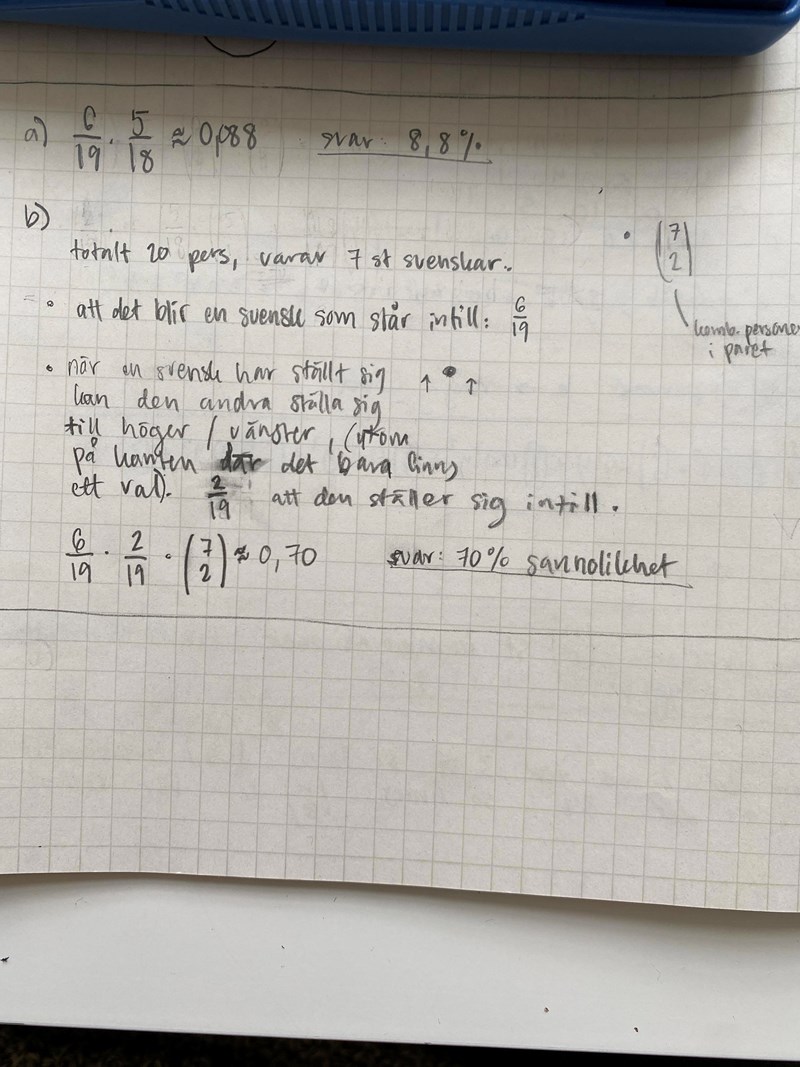 a) 6/19 · 5/18 ≈ 0,088 svar: 8,8%
b)
totalt 20 pers, varav 7 st svenskar.
• att det blir en svensk som står intill: 6/19
• (7 2)
komb. persone
i paret
• när en svensk har ställt sig ↑ • ↑
kan den andra ställa sig
till höger / vänster, (utom
på kanten där det bara finns
ett val). 2/19 att den ställer sig intill.
6/19 · 2/19 · (7 2) ≈ 0,70 svar: 70% sannolikhet